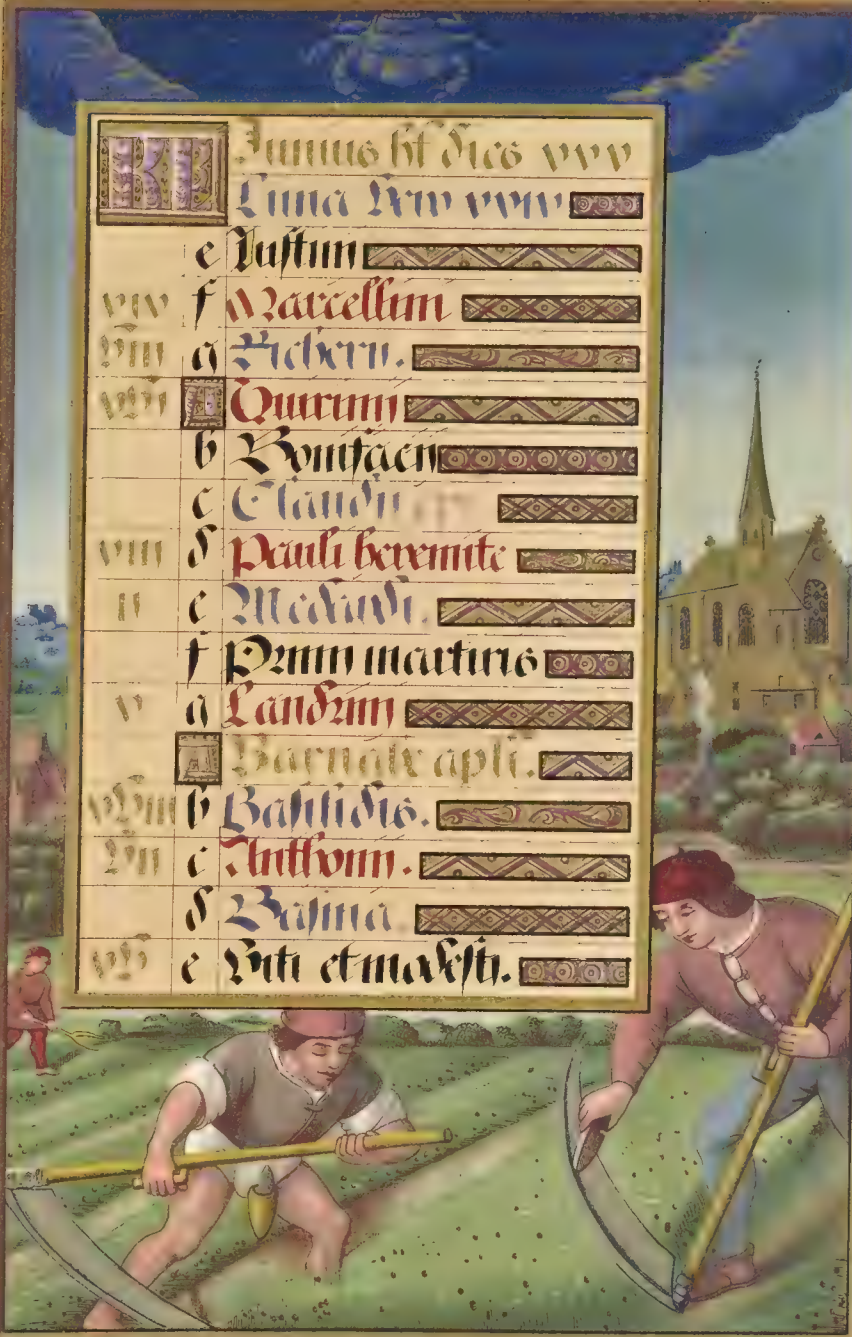 KL Junius ht dies xxx
Luna xxix
e Justini
xix f Marcellini
viii a Picheri.
xvi A Quirini
b Bonifacii
c Claudii
viii d Pauli heremite
ii e Medardi.
f Primi martiris
x a Landrini
A Barnabe apli.
xviii b Basilidis.
vii c Anthonii.
d Basina.
xv e Viti et modesti.